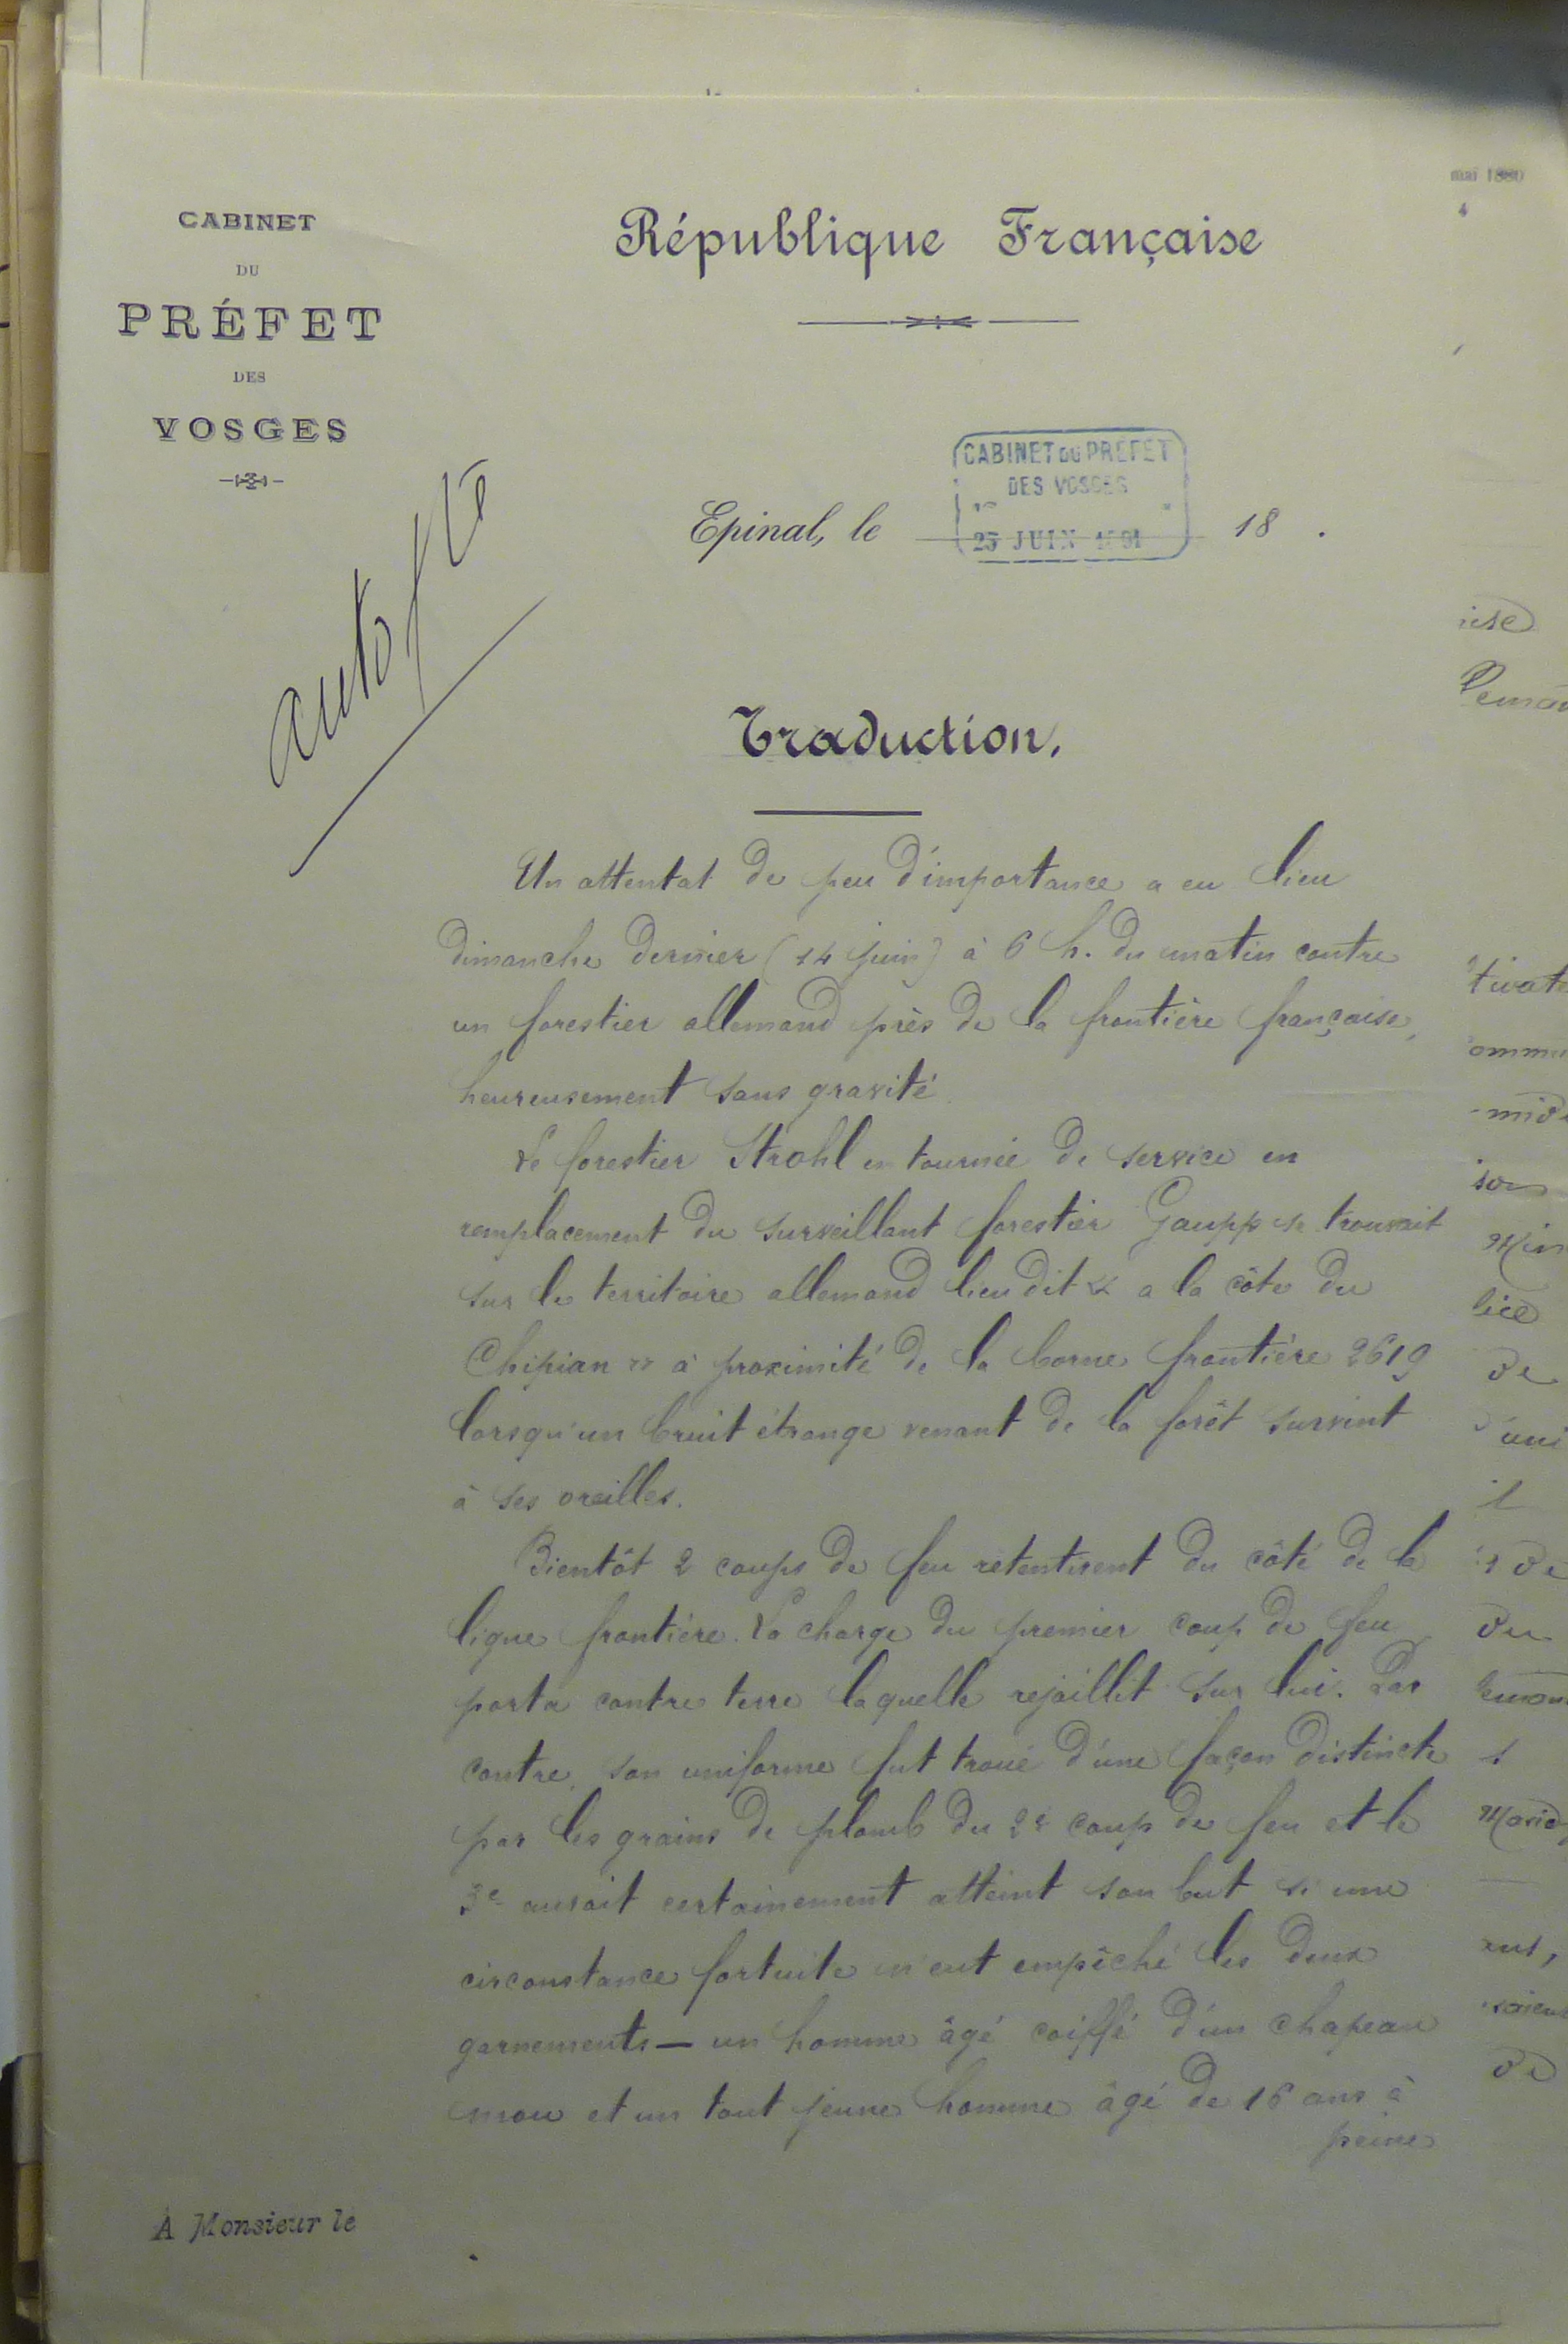 CABINET
DU
PRÉFET
DES
VOSGES
République Française
mai 1880
4
CABINET DU PREFET
DES VOSGES
25 JUIN 1891
Epinal, le 18 .
Traduction.
Un attentat de peu d'importance a eu lieu
dimanche dernier (14 juin) à 6 h. du matin contre
un forestier allemand près de la frontière française,
heureusement sans gravité.
Le forestier Strohl en tournée de service en
remplacement du surveillant forestier Gaupp se trouvait
sur le territoire allemand lieu dit « a la côte du
Chipian » à proximité de la borne frontière 2619
lorsqu'un bruit étrange venant de la forêt survint
à ses oreilles.
Bientôt 2 coups de feu retentirent du côté de la
ligne frontière. La charge du premier coup de feu
porta contre terre laquelle rejaillit sur lui. Par
contre, son uniforme fut troué d'une façon distincte
par les grains de plomb du 2e coup de feu et le
3e aurait certainement atteint son but si une
circonstance fortuite n'eut empêché les deux
garnements — un homme âgé coiffé d'un chapeau
mou et un tout jeune homme âgé de 16 ans à
peine
A Monsieur le